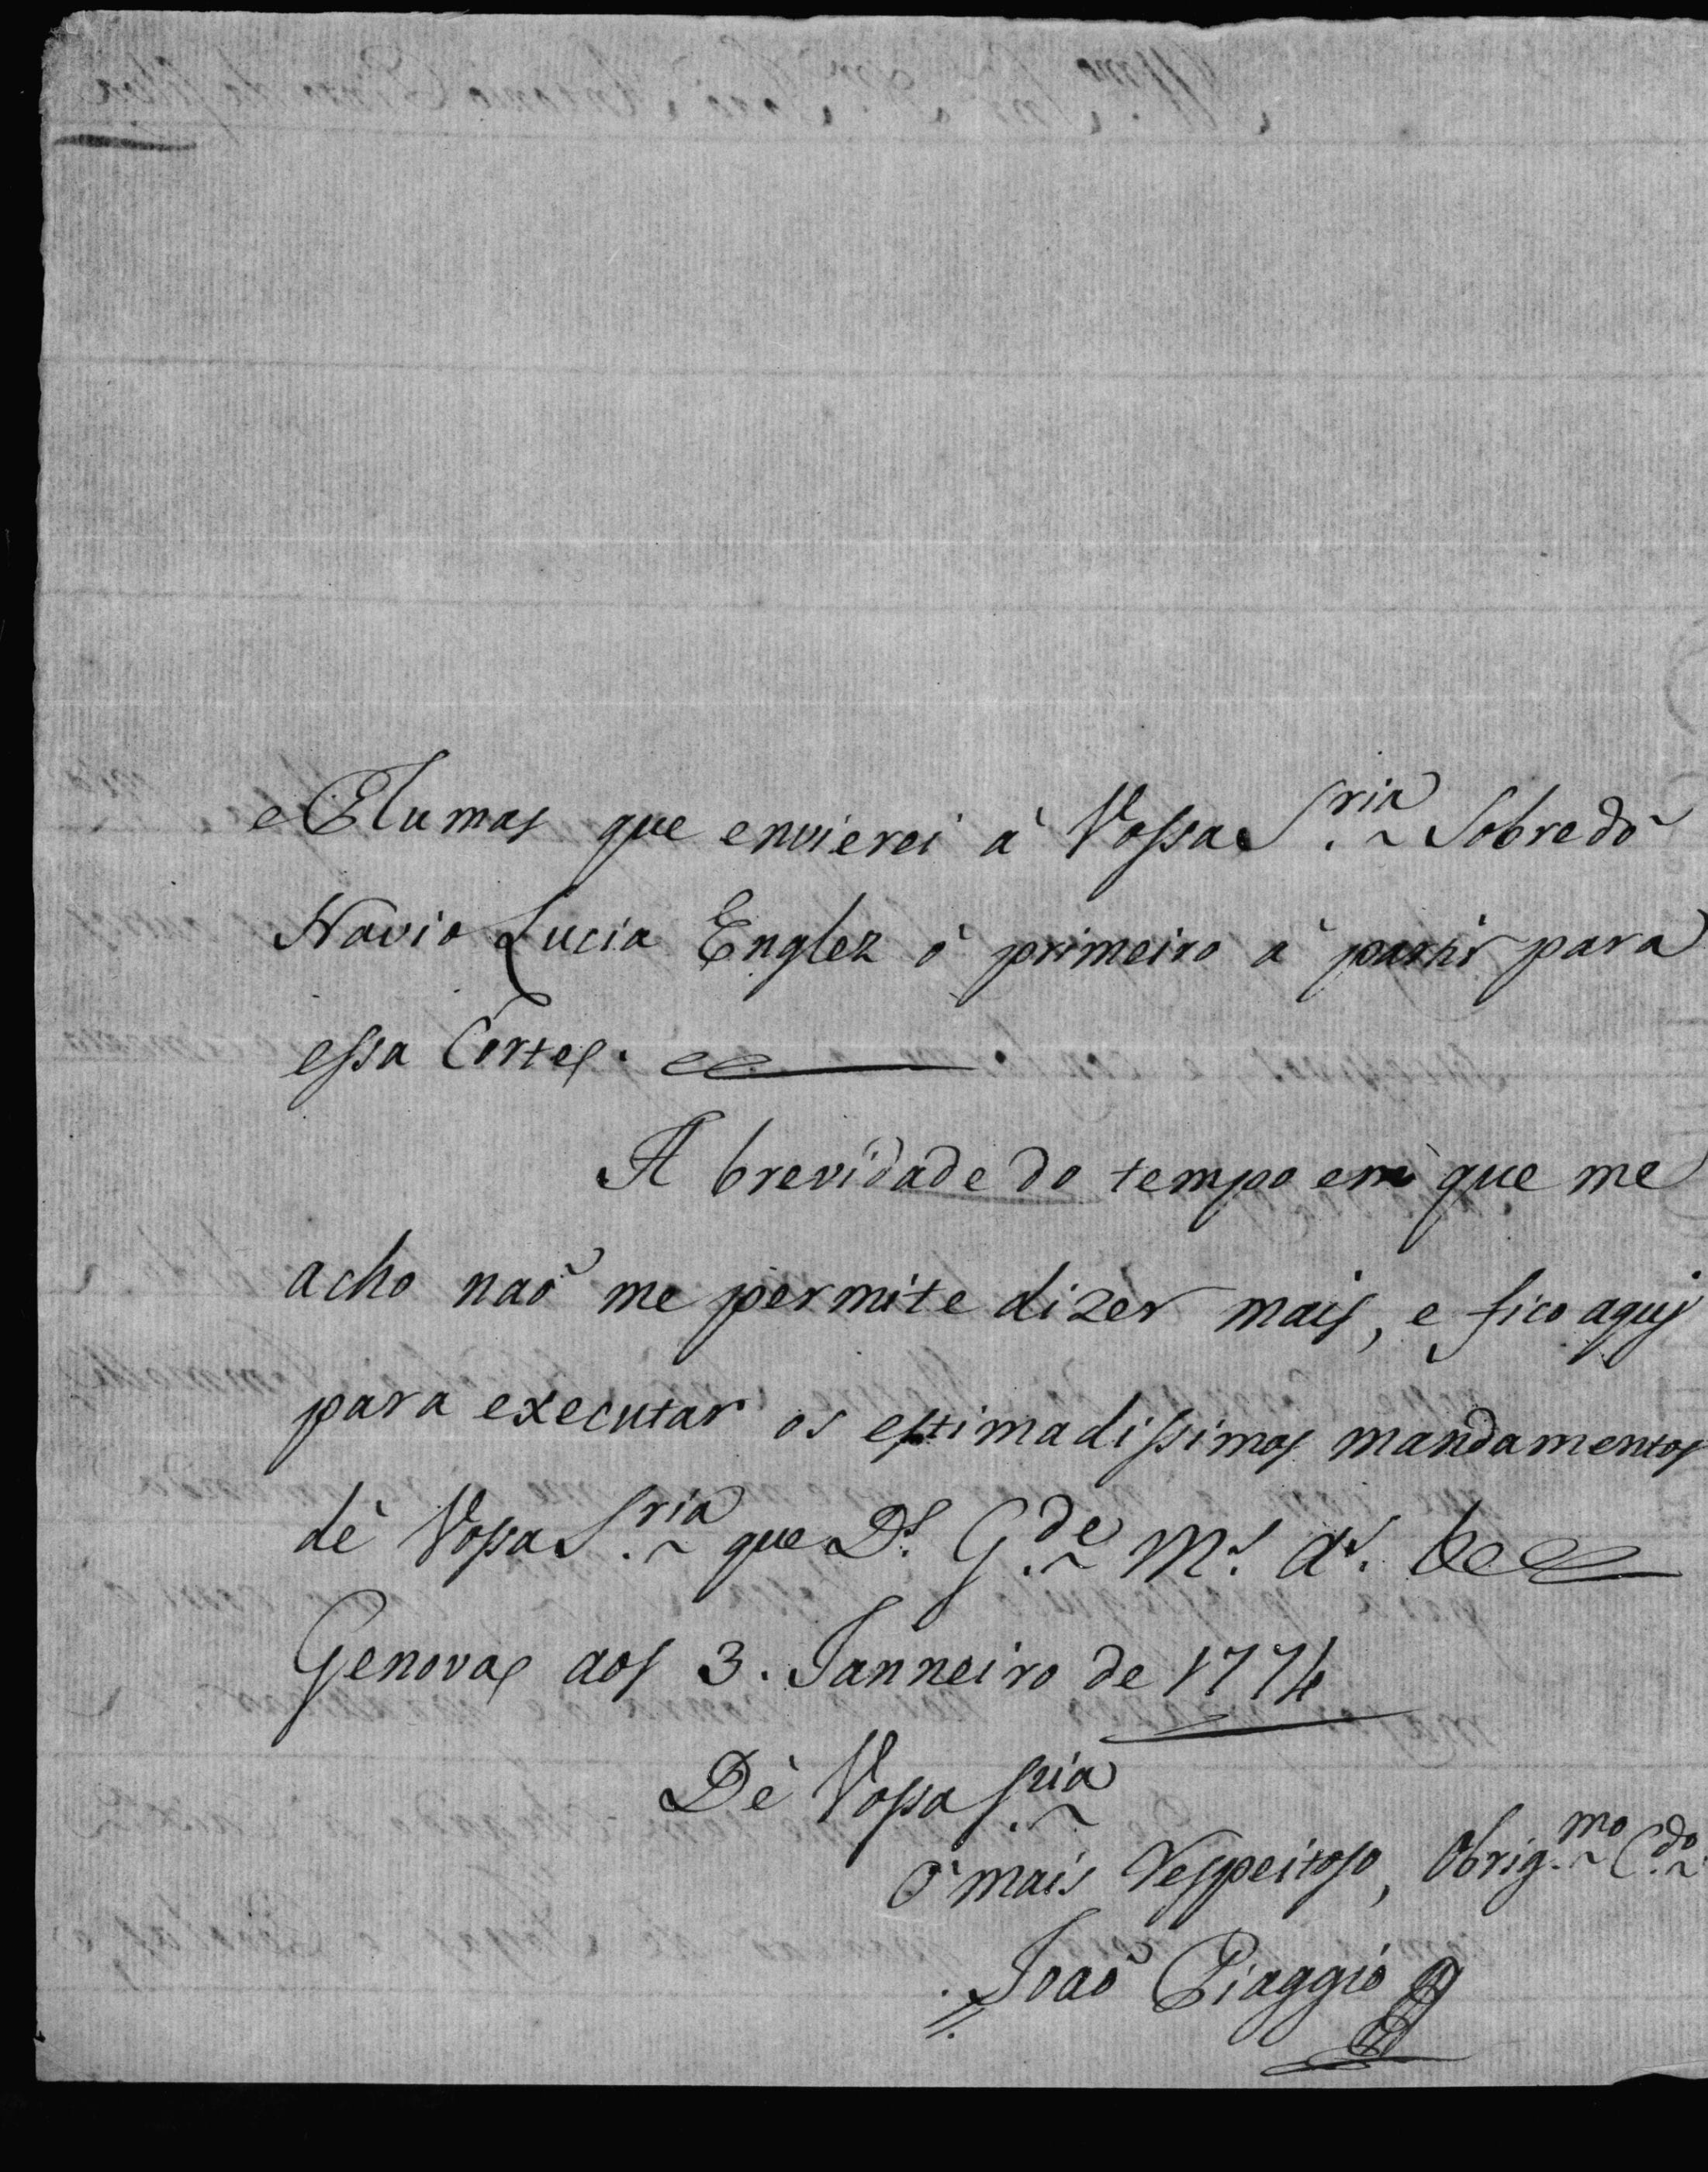 e Plumas que envierei à Vossa S.ria Sobre dò
Navio Lucia Englez ò primeiro à partir para
essa Corte.
A brevidade do tempo em que me
acho naõ me permite dizer mais, e fico aqui
para executar os estimadissimos mandamentos
dè Vossa S.ria que D.s G.de M.s a.s &
Genova aos 3. Janneiro de 1774
Dè Vossa S.ria
O mais Respeitoso, Obrig.mo C.do
Joaõ Piaggio